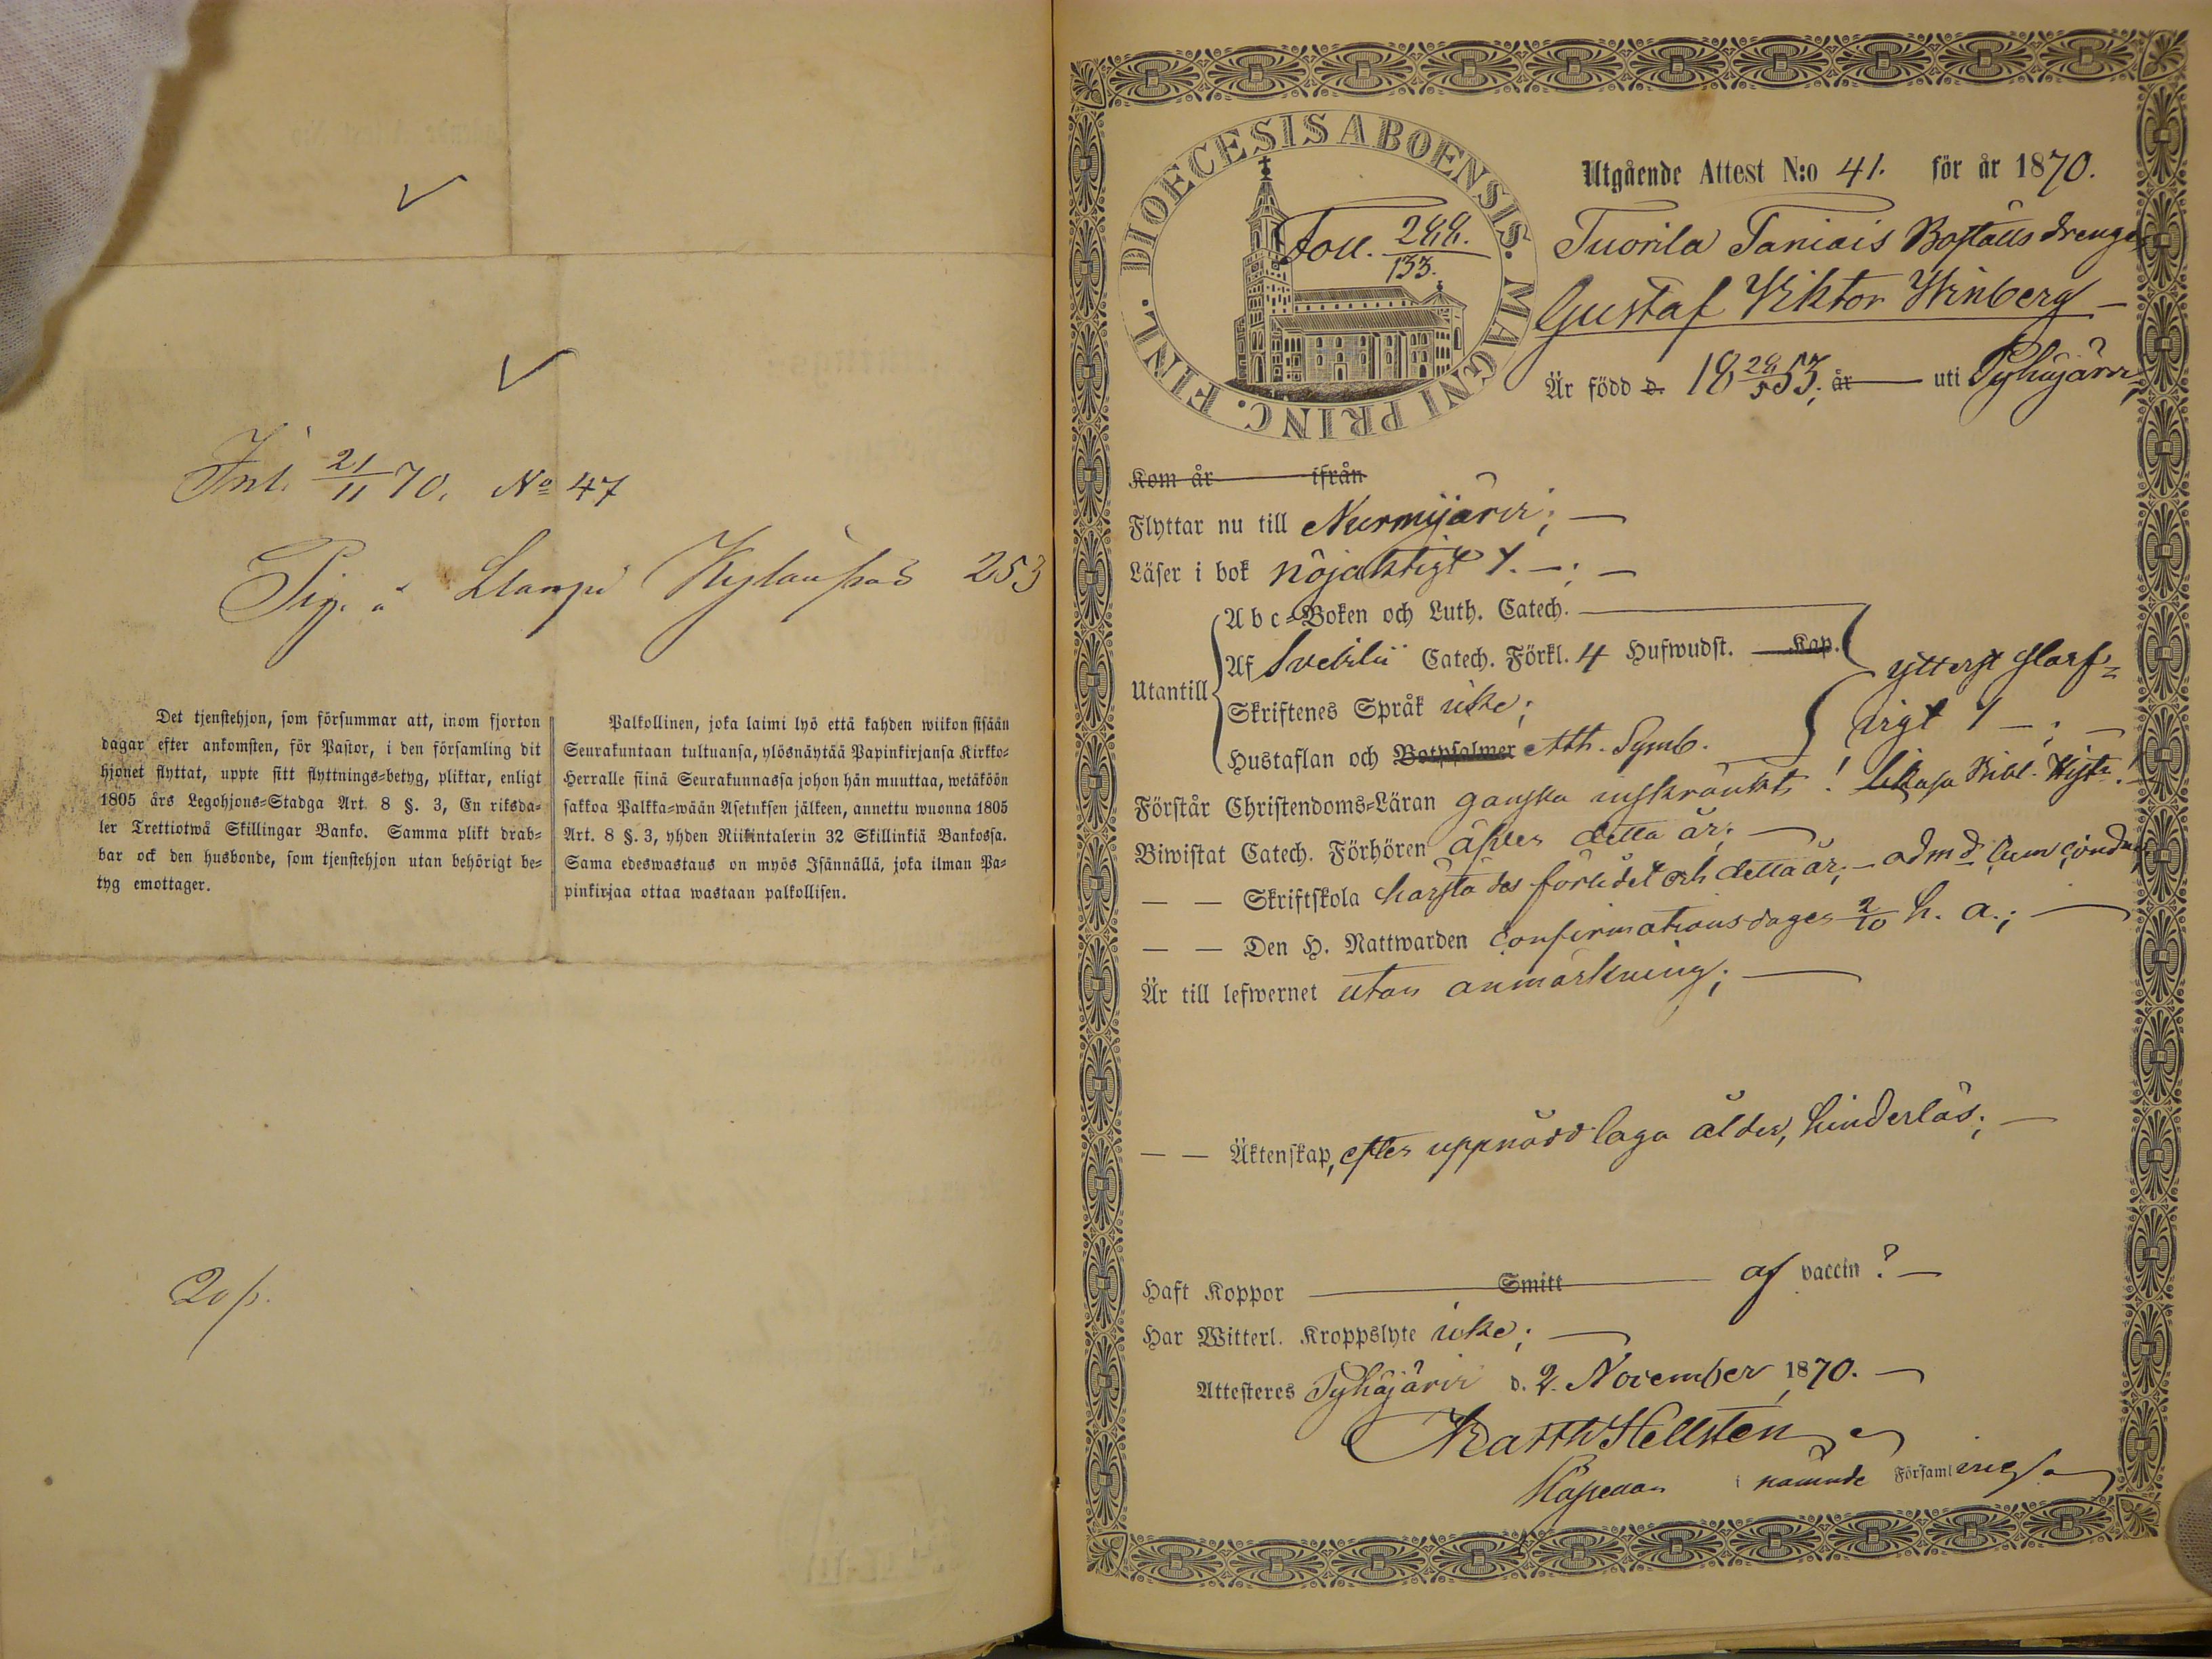 Inl. 21/11 70. No 47
253
Det tjenstehjon, som försummar att, inom fjorton
dagar efter ankomsten, för Pastor, i den församling dit
hjonet flyttat, uppte sitt flyttnings=betyg, pliktar, enligt
1805 års Legohjons=Stadga Art 8 §. 3, En riksda=
ler Trettiotwå Skillingar Banko. Samma plikt drab=
bar ock den husbonde, som tjenstehjon utan behörigt be=
tyg emottager.
Palkollinen, joka laimi lyö että kahden wiikon sisään
Seurakuntaan tultuansa, ylösnäytää Papinkirjansa Kirkko=
Herralle siinä Seurakunnassa johon hän muuttaa, wetäköön
sakkoa Palkka=wään Asetuksen jälkeen, annettu wuonna 1805
Art. 8 §. 3, yhden Riikintalerin 32 Skillinkiä Bankossa.
Sama edeswastaus on myös Isännällä, joka ilman Pa=
pinkirjaa ottaa wastaan palkollisen.
20 p.
DIOECESIS ABOENSIS. MAGNI PRINC. FINL.
Foll. 244. / 133.
Utgående Attest N:o 41. för år 1870.
Tuorila Taniais Boställs drengen
Gustaf Viktor Winberg —
Är född d. 18 24/5 53, år — uti Pyhäjärvi,
Kom år ifrån
Flyttar nu till Nurmijärvi; —
Läser i bok nöjaktigt 1. —; —
Abc=Boken och Luth. Catech. —
Utantill Af Svebilii Catech. Förkl. 4 Hufwudst. — Kap. ytterst slarf=
Skriftenes Språk icke; vigt 1 —; —
Hustaflan och Botpsalmer Ath. Symb.
Förstår Christendoms=Läran ganska inskränkt! likaså Bibl. Hist.! —
Biwistat Catech. Förhören äfven detta år; —
— — Skriftskola härstädes förlidet och detta år; — adm d.
— — Den H. Nattwarden confirmationsdagen 2/10 h. a.; —
Är till lefwernet utan anmärkning; —
— — Äktenskap, efter uppnådd laga ålder, hinderlös; —
Haft Koppor — Smitt — af vaccin? —
Har Witterl. Kroppslyte icke; —
Attesteres Pyhäjärvi d. 2. November 1870. —
Matth Hellsten
Kapellan i nämnde Församling.